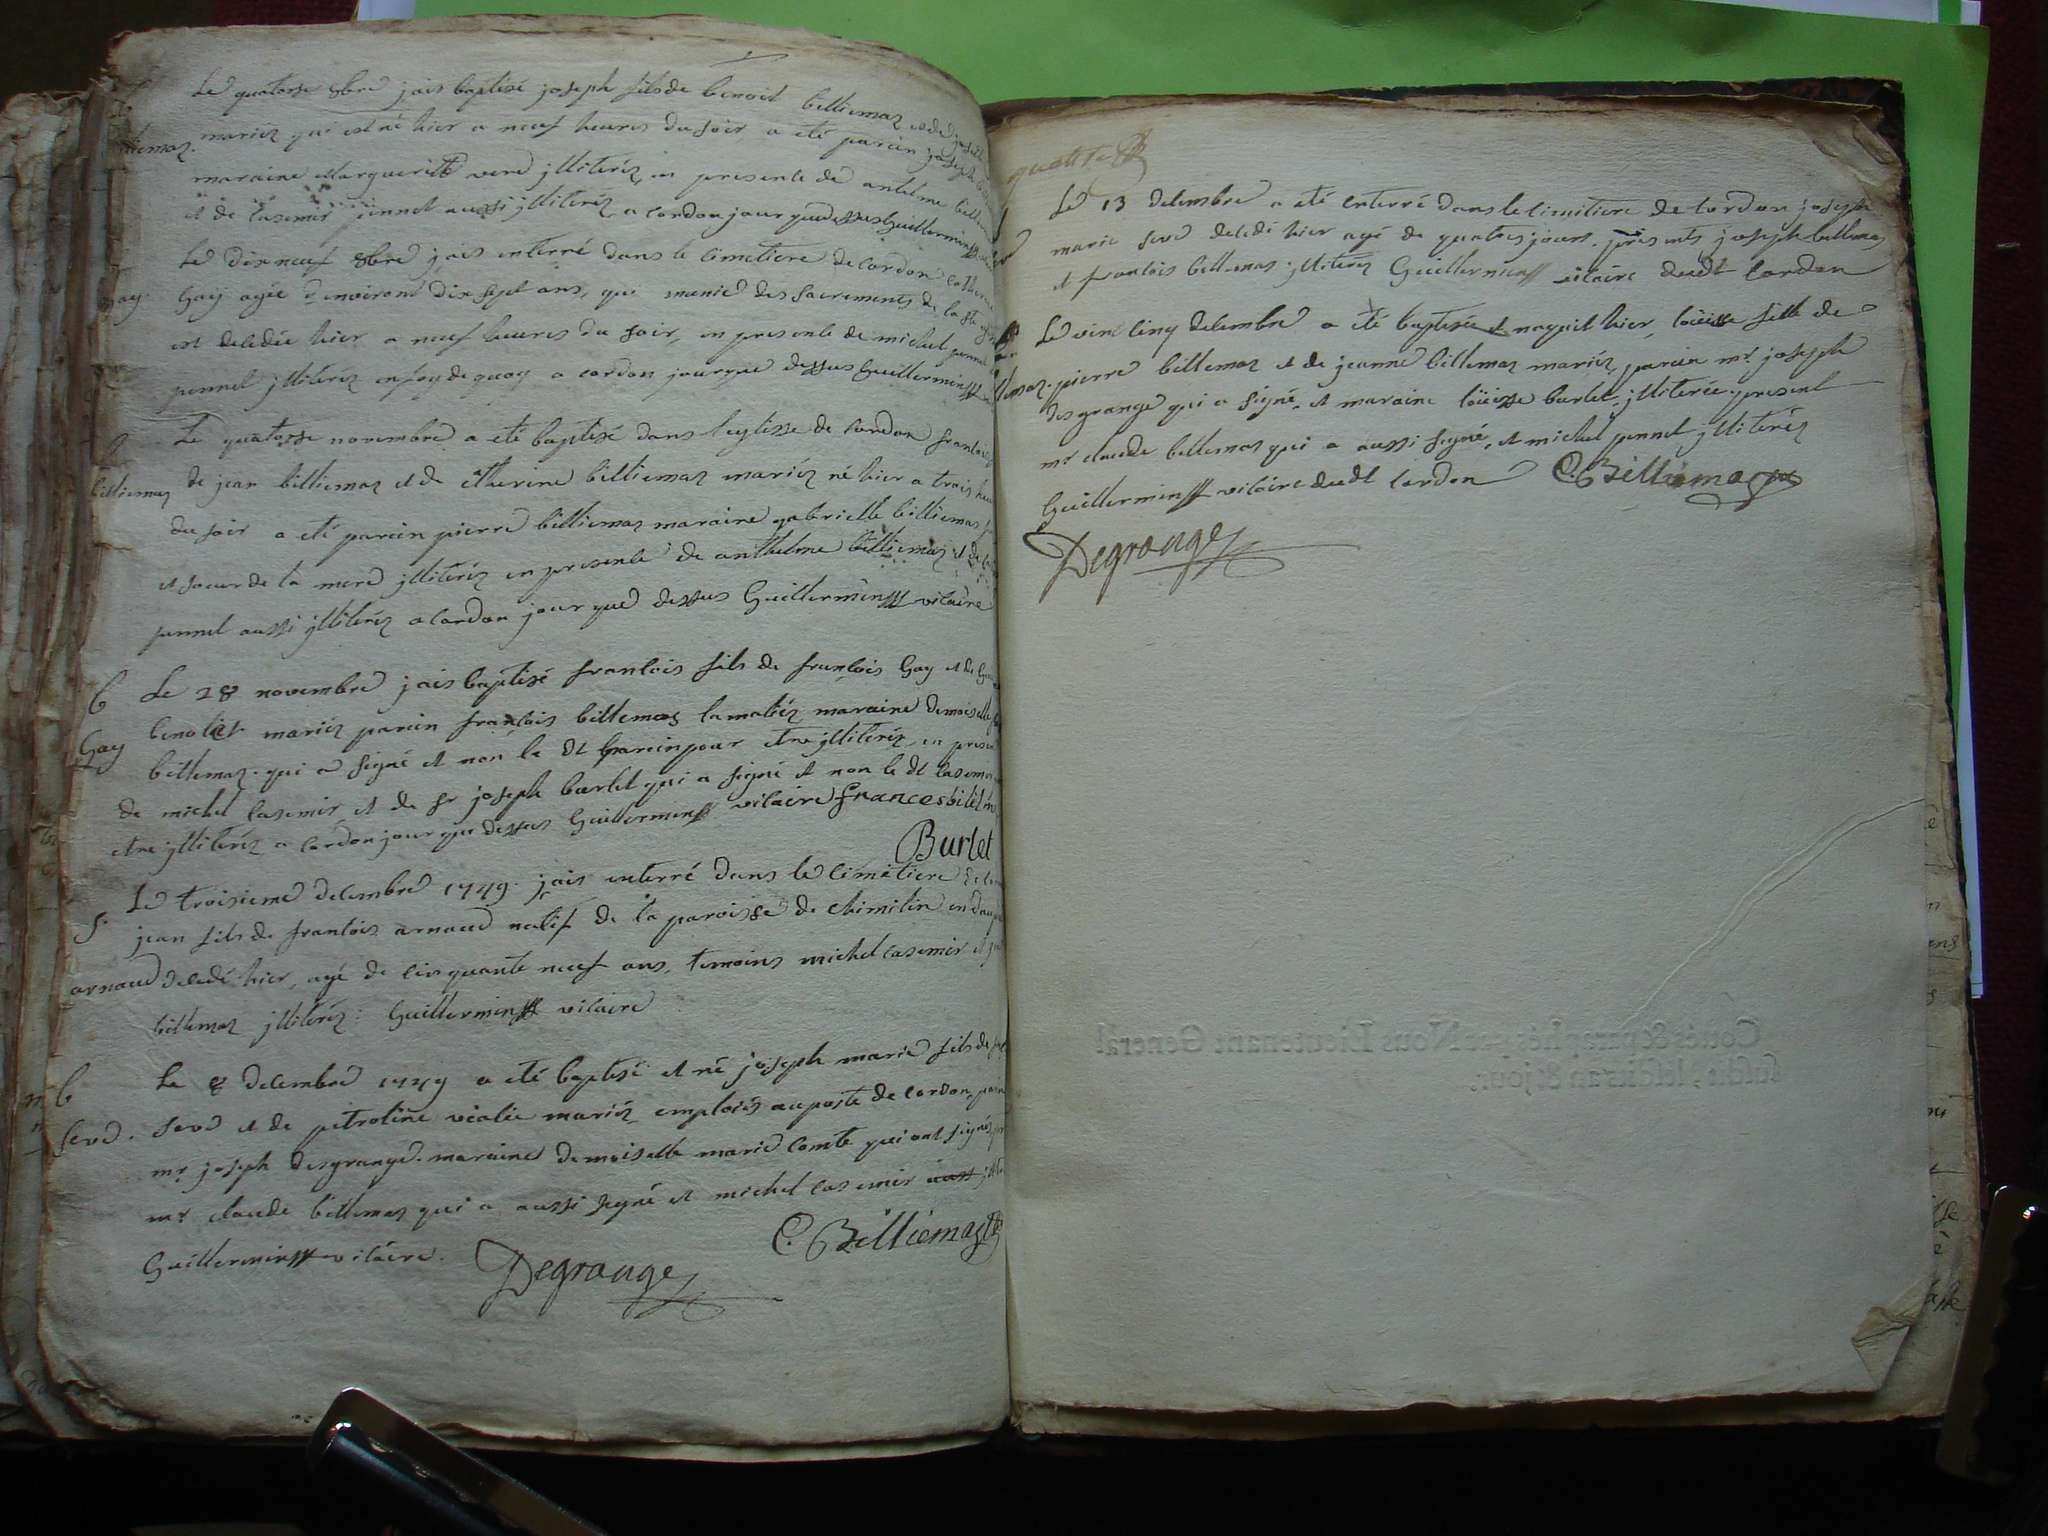 Le quatorse 8bre jais baptisé joseph fils de benoit billiemaz et de
mariéz qui est né hier a neuf heures du soir a eté parain joseph
maraine Margueritte jlliteréz en presence de antelme
et de Casemir pennet aussi jlliteréz a Cordon jour que dessus Guillermin
Le dix neuf 8bre jais enterré dans le cimetiere de Cordon
Gay
Gay agée d'environt dix sept ans, qui munie des sacrements de la ste
est decedée hier a neuf heures du soir, en presence de michel pennet
pennet jlliteréz en foy de quoy a cordon jour que dessus Guillermin
b
Le quatorse novembre a eté baptisé dans l'eglisse de Cordon francois
billiemaz
de jean billiemaz et de Catherine billiemaz mariéz né hier a trois
du soir a eté parain pierre billiemaz maraine gabrielle billiemaz
et soeur de la mere jlliteréz en presence de anthelme billiemaz et de
pennet aussi jlliteréz a Cordon jour que dessus Guillermin vicaire
b
Le 28 novembre jais baptisé francois fils de francois Gay et de
Gay
benoist mariéz parain francois billemaz maraine demoiselle
billemaz. qui a signé et non le dt parain pour etre jlliteréz, en
de michel Casemir, et de sr joseph burlet qui a signé et non le dt Casemir
etre jlliteréz a Cordon jour que dessus Guillermin vicaire frances
Burlet
Le troisieme decembre 1749. jais enterré dans le cimetiere
S.
jean fils de francois arnaud natif de la paroisse de Chimilin en
arnaud
decedé hier, agé de cinquante neuf ans, temoins michel Casemir et
billemaz jlliteréz: Guillermin vicaire
b
Le 8 decembre 1749 a eté baptisé et né joseph marie fils de
seve.
seve et de mariéz employés au poste de cordon,
mr. joseph desgrange. maraine demoiselle marie Comte qui ont signés
mr claude billemaz qui a aussi signé et michel Casemir
Guillermin vicaire.
C. Billiemaz
Degrange
Le 13 decembre a eté enterré dans le cimitiere de Cordon joseph
marie seve decedé hier agé de quatres jours. présents joseph billemaz
et francois billemaz. jlliteréz Guillermin vicaire dudt Cordon
Le vint cinq decembre a eté baptisée et naquit hier, loüisse fille de
pierre billemaz et de jeanne billemaz mariéz, parain mr. joseph
desgrange qui a signé, et maraine loüisse burlet, jlliterée. present
mr claude billemaz qui a aussi signé, et michel pennet jlliteréz
Guillermin vicaire dudt Cordon C. Billiemaz
Degrange
Nous Lieutenant General